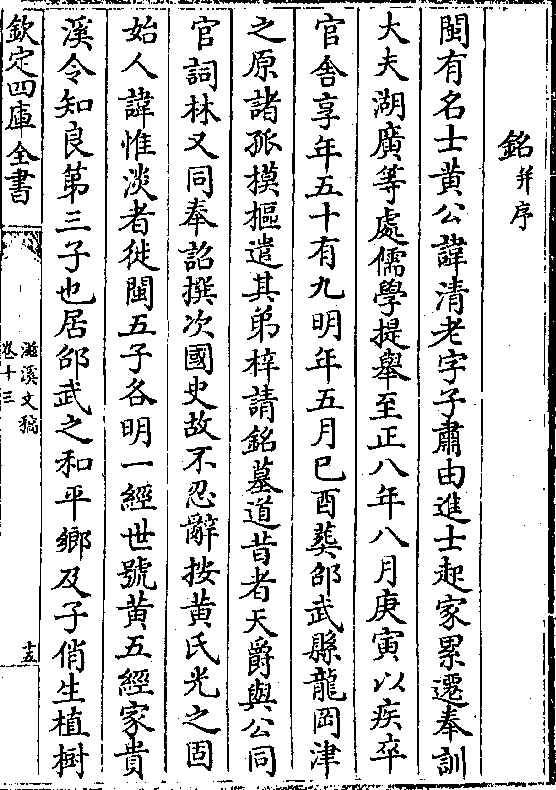 銘并序
閩有名士黃公諱清老字子肅由進士起家累遷奉訓
大夫湖廣等處儒學提舉至正八年八月庚寅以疾卒
官舍享年五十有九明年五月巳酉葬邵武縣龍岡津
之原諸孤摸摳遣其弟梓請銘墓道昔者天爵與公同
官詞林又同奉詔撰次國史故不忍辭按黃氏光之固
始人諱惟淡者徙閩五子各明一經世號黃五經家貴
溪令知良第三子也居邵武之和平鄉及子俏生植樹
欽定四庫全書
滋溪文稿
卷十三
十五